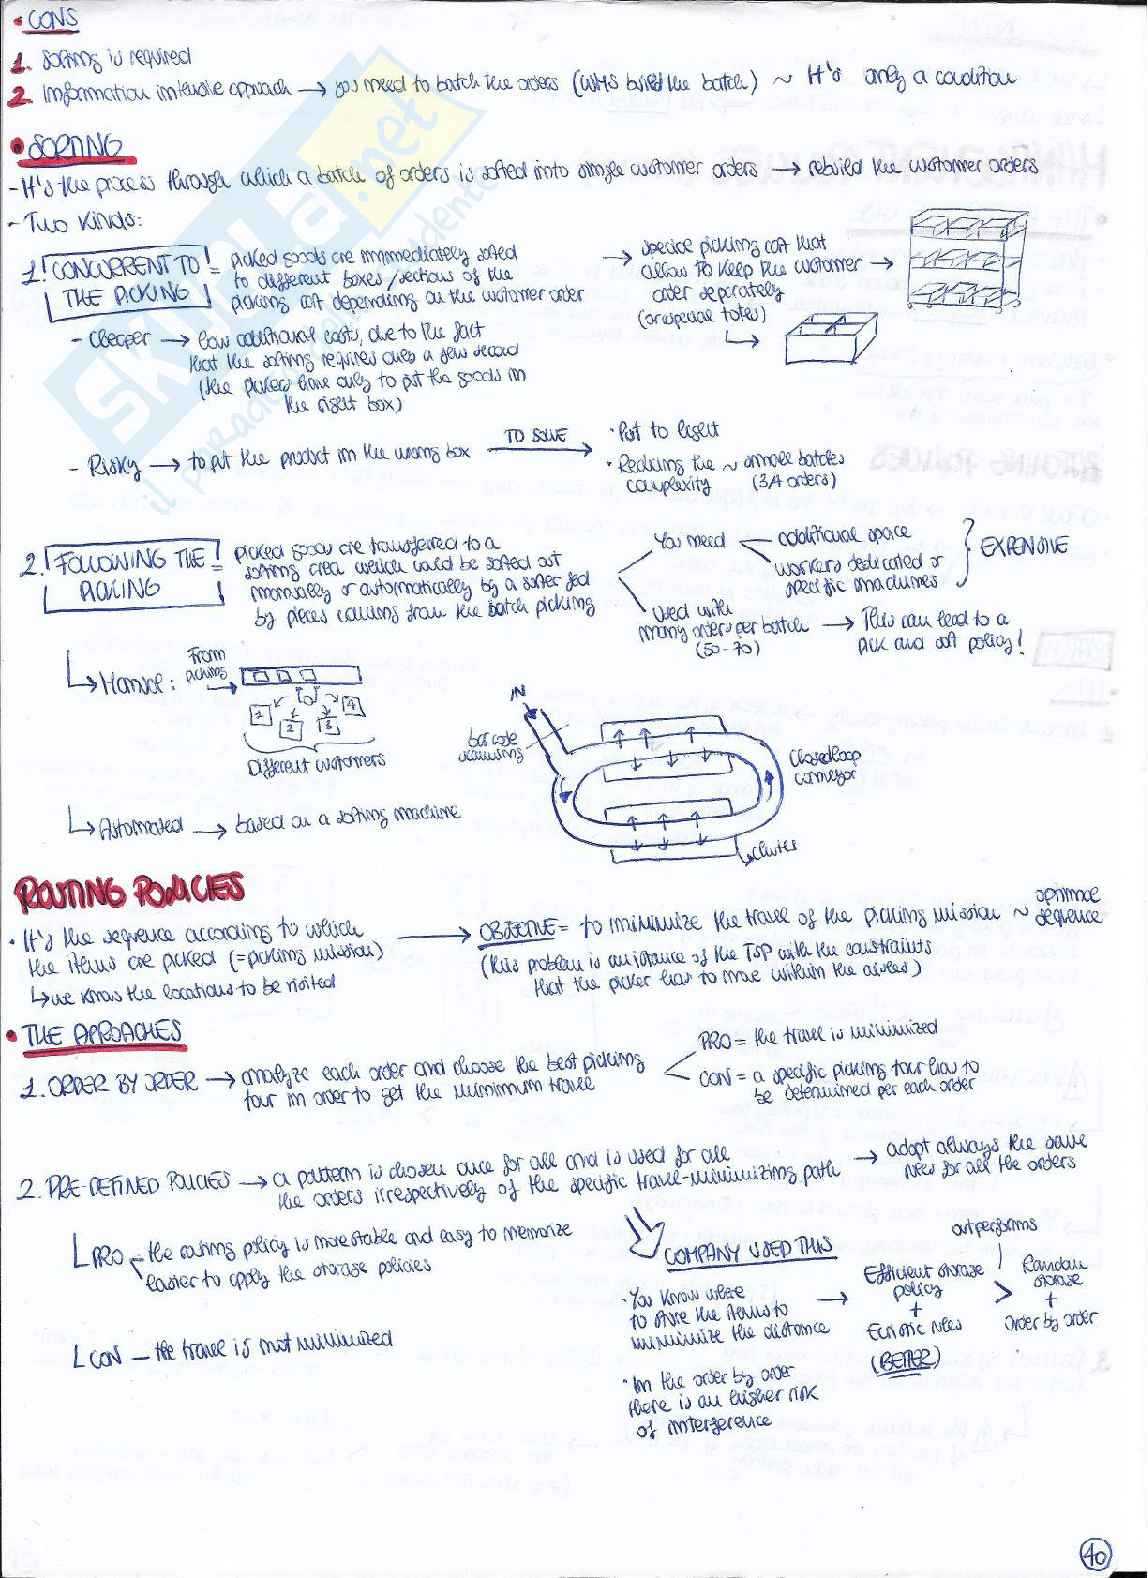 • CONS
1. Sorting is required
2. Information intensive approach → you need to batch the orders (WMS build the batch) ~ It's only a condition
• SORTING
- It's the process through which a batch of orders is sorted into single customer orders → rebuild the customer orders
- Two kinds:
1. CONCURRENT TO THE PICKING = picked goods are immediately sorted
to different boxes/sections of the
picking cart depending on the customer order
→ specific picking cart that
allow to keep the customer →
order separately
(or special totes)
- Cheaper → low additional costs, due to the fact
that the sorting requires only a few second
(the pickers have only to put the goods in
the right box)
- Risky → to put the product in the wrong box
TO SOLVE
• Put to light
• Reducing the ~ smaller batches
complexity (3,4 orders)
2. FOLLOWING THE PICKING = picked goods are transferred to a
sorting area which could be sorted out
manually or automatically by a sorter fed
by pieces coming from the batch picking
You need
additional space
workers dedicated or
specific machines
EXPENSIVE
Used with
many orders per batch → This can lead to a
(50-70) pick and sort policy!
↳ Manual:
From
picking
1 2 3 4
Different customers
IN
bar code
scanning
Closed loop
conveyor
chutes
↳ Automated → based on a sorting machine
ROUTING POLICIES
• It's the sequence according to which
the items are picked (=picking mission)
↳ we know the locations to be visited
OBJECTIVE = to minimize the travel of the picking mission ~ optimal
sequence
(this problem is an istance of the TSP with the constraints
that the picker has to move within the aisles)
• THE APPROACHES
1. ORDER BY ORDER → analyze each order and choose the best picking
tour in order to get the minimum travel
PRO = the travel is minimized
CON = a specific picking tour has to
be determined per each order
2. PRE-DEFINED POLICIES → a pattern is chosen once for all and is used for all
the orders irrespectively of the specific travel-minimizing path
→ adopt always the same
for all the orders
PRO - the routing policy is more stable and easy to memorize
easier to apply the storage policies
CON - the travel is not minimized
COMPANY USED THIS
• You know where
to store the items to
minimize the distance
→
Efficient storage
policy
+
Euristic rules
(BETTER)
outperforms
>
Random
storage
+
Order by order
• In the order by order
there is an higher risk
of interference
40
skuola.net